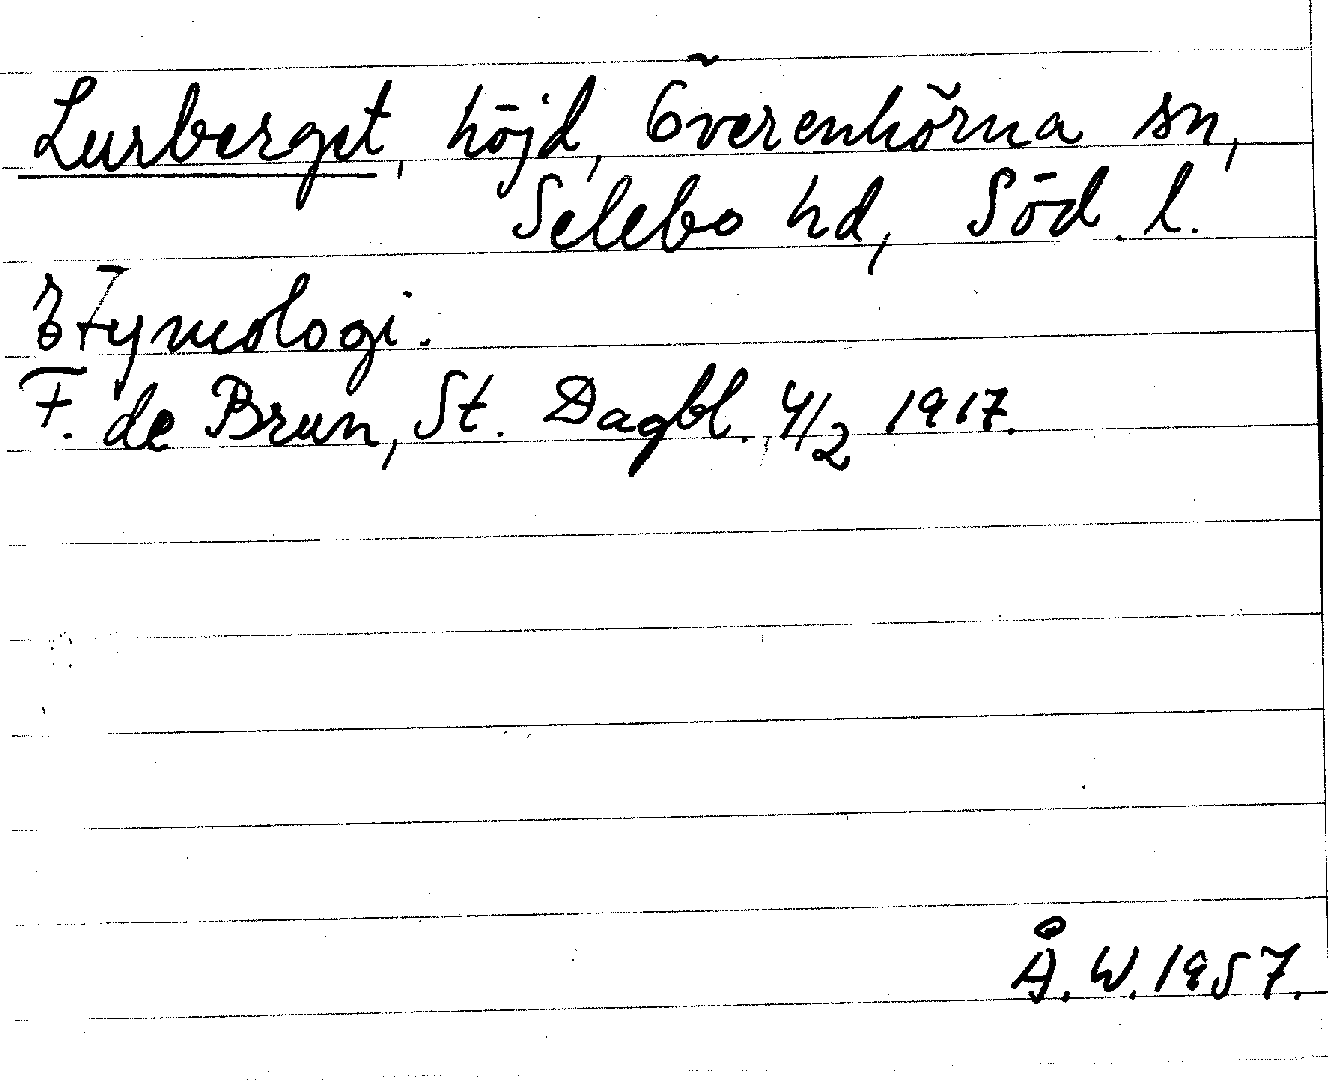 Lurberget, höjd, Överenhörna sn,
Selebo hd, Söd. l.
Etymologi.
F. de Brun, St. Dagbl. 4/2 1917.
Å. W. 1957.